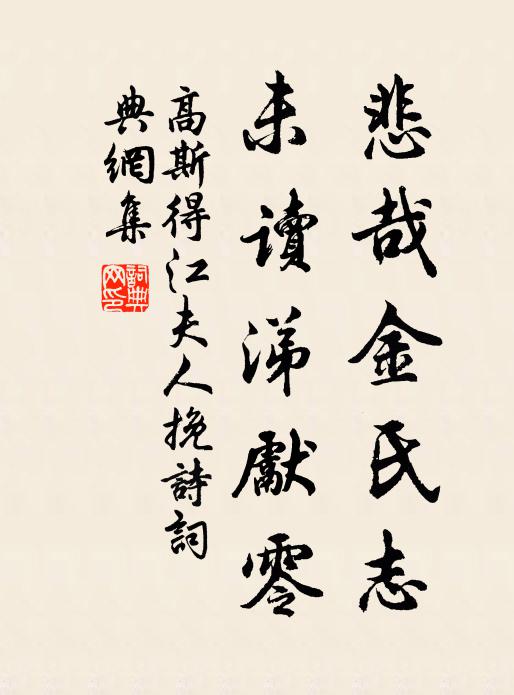 悲哉金氏志
未讀涕獻零
高斯得江夫人挽詩詞
典網集
詞典
网印